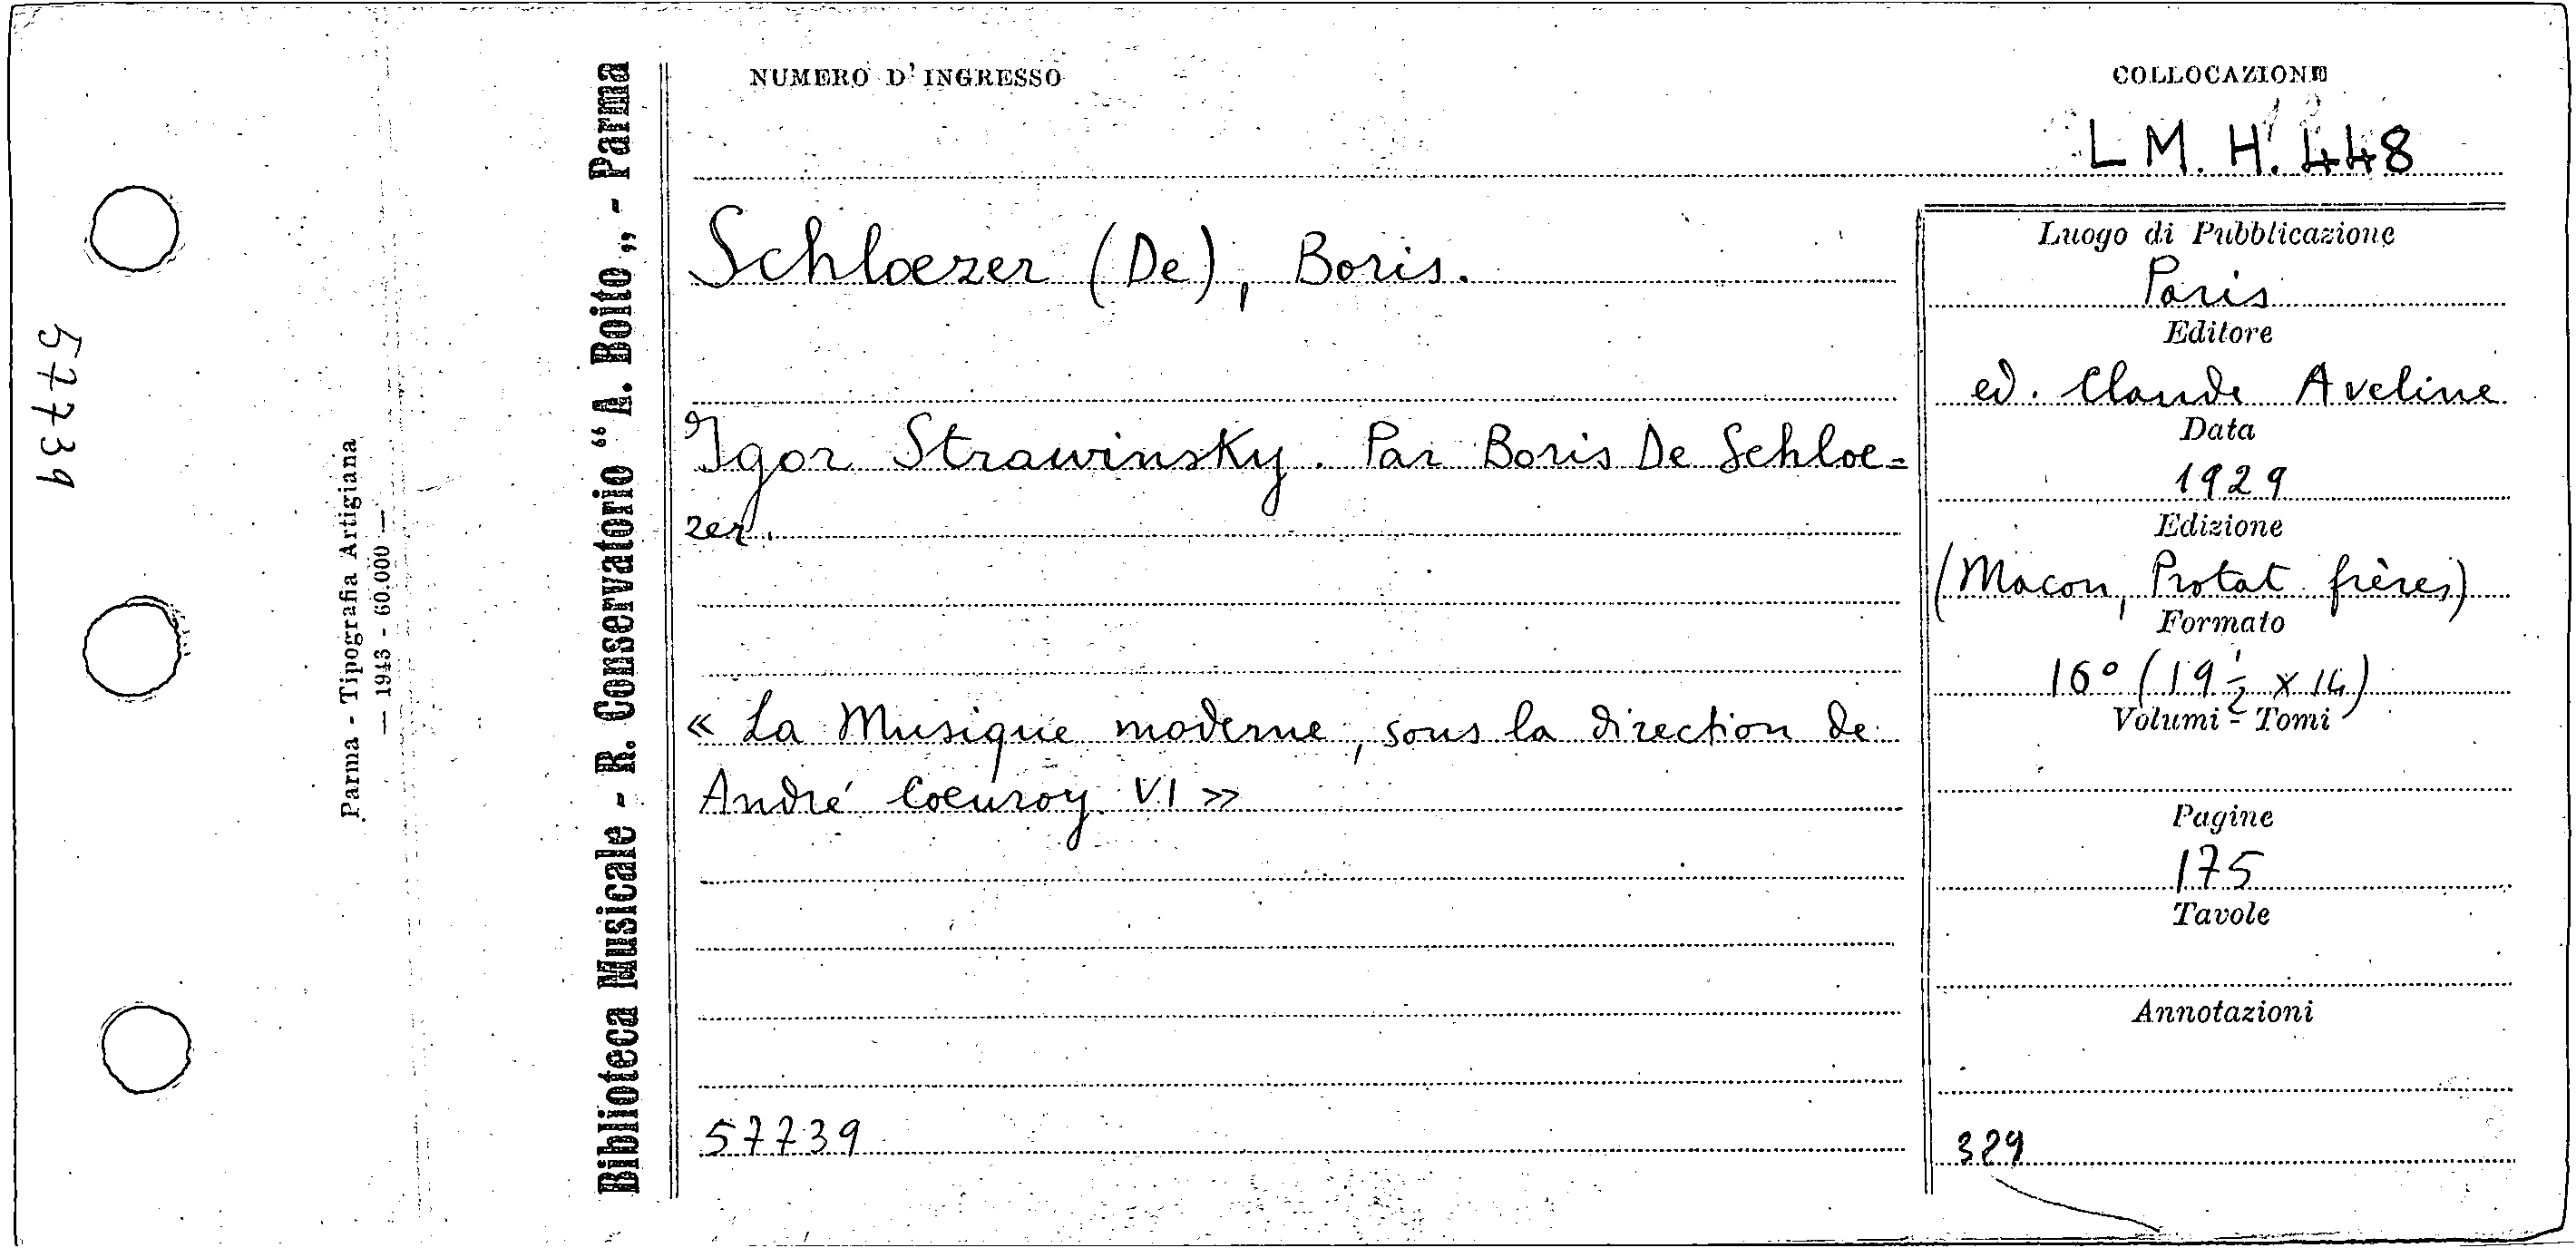 57739
Parma - Tipografia Artigiana
— 1943 - 60.000 —
Biblioteca Musicale - R. Conservatorio “A. Boito„ - Parma
NUMERO D'INGRESSO
COLLOCAZIONE
L M. H. 448
Schloezer (De), Boris.
Igor Strawinsky. Par Boris De Schloe=
zer.
« La Musique moderne, sous la direction de
André Coeuroy VI »
57739
Luogo di Pubblicazione
Paris
Editore
ed. Claude Aveline
Data
1929
Edizione
(Macon, Protat frères)
Formato
16° (19 ½ x 14)
Volumi - Tomi
Pagine
175
Tavole
Annotazioni
329